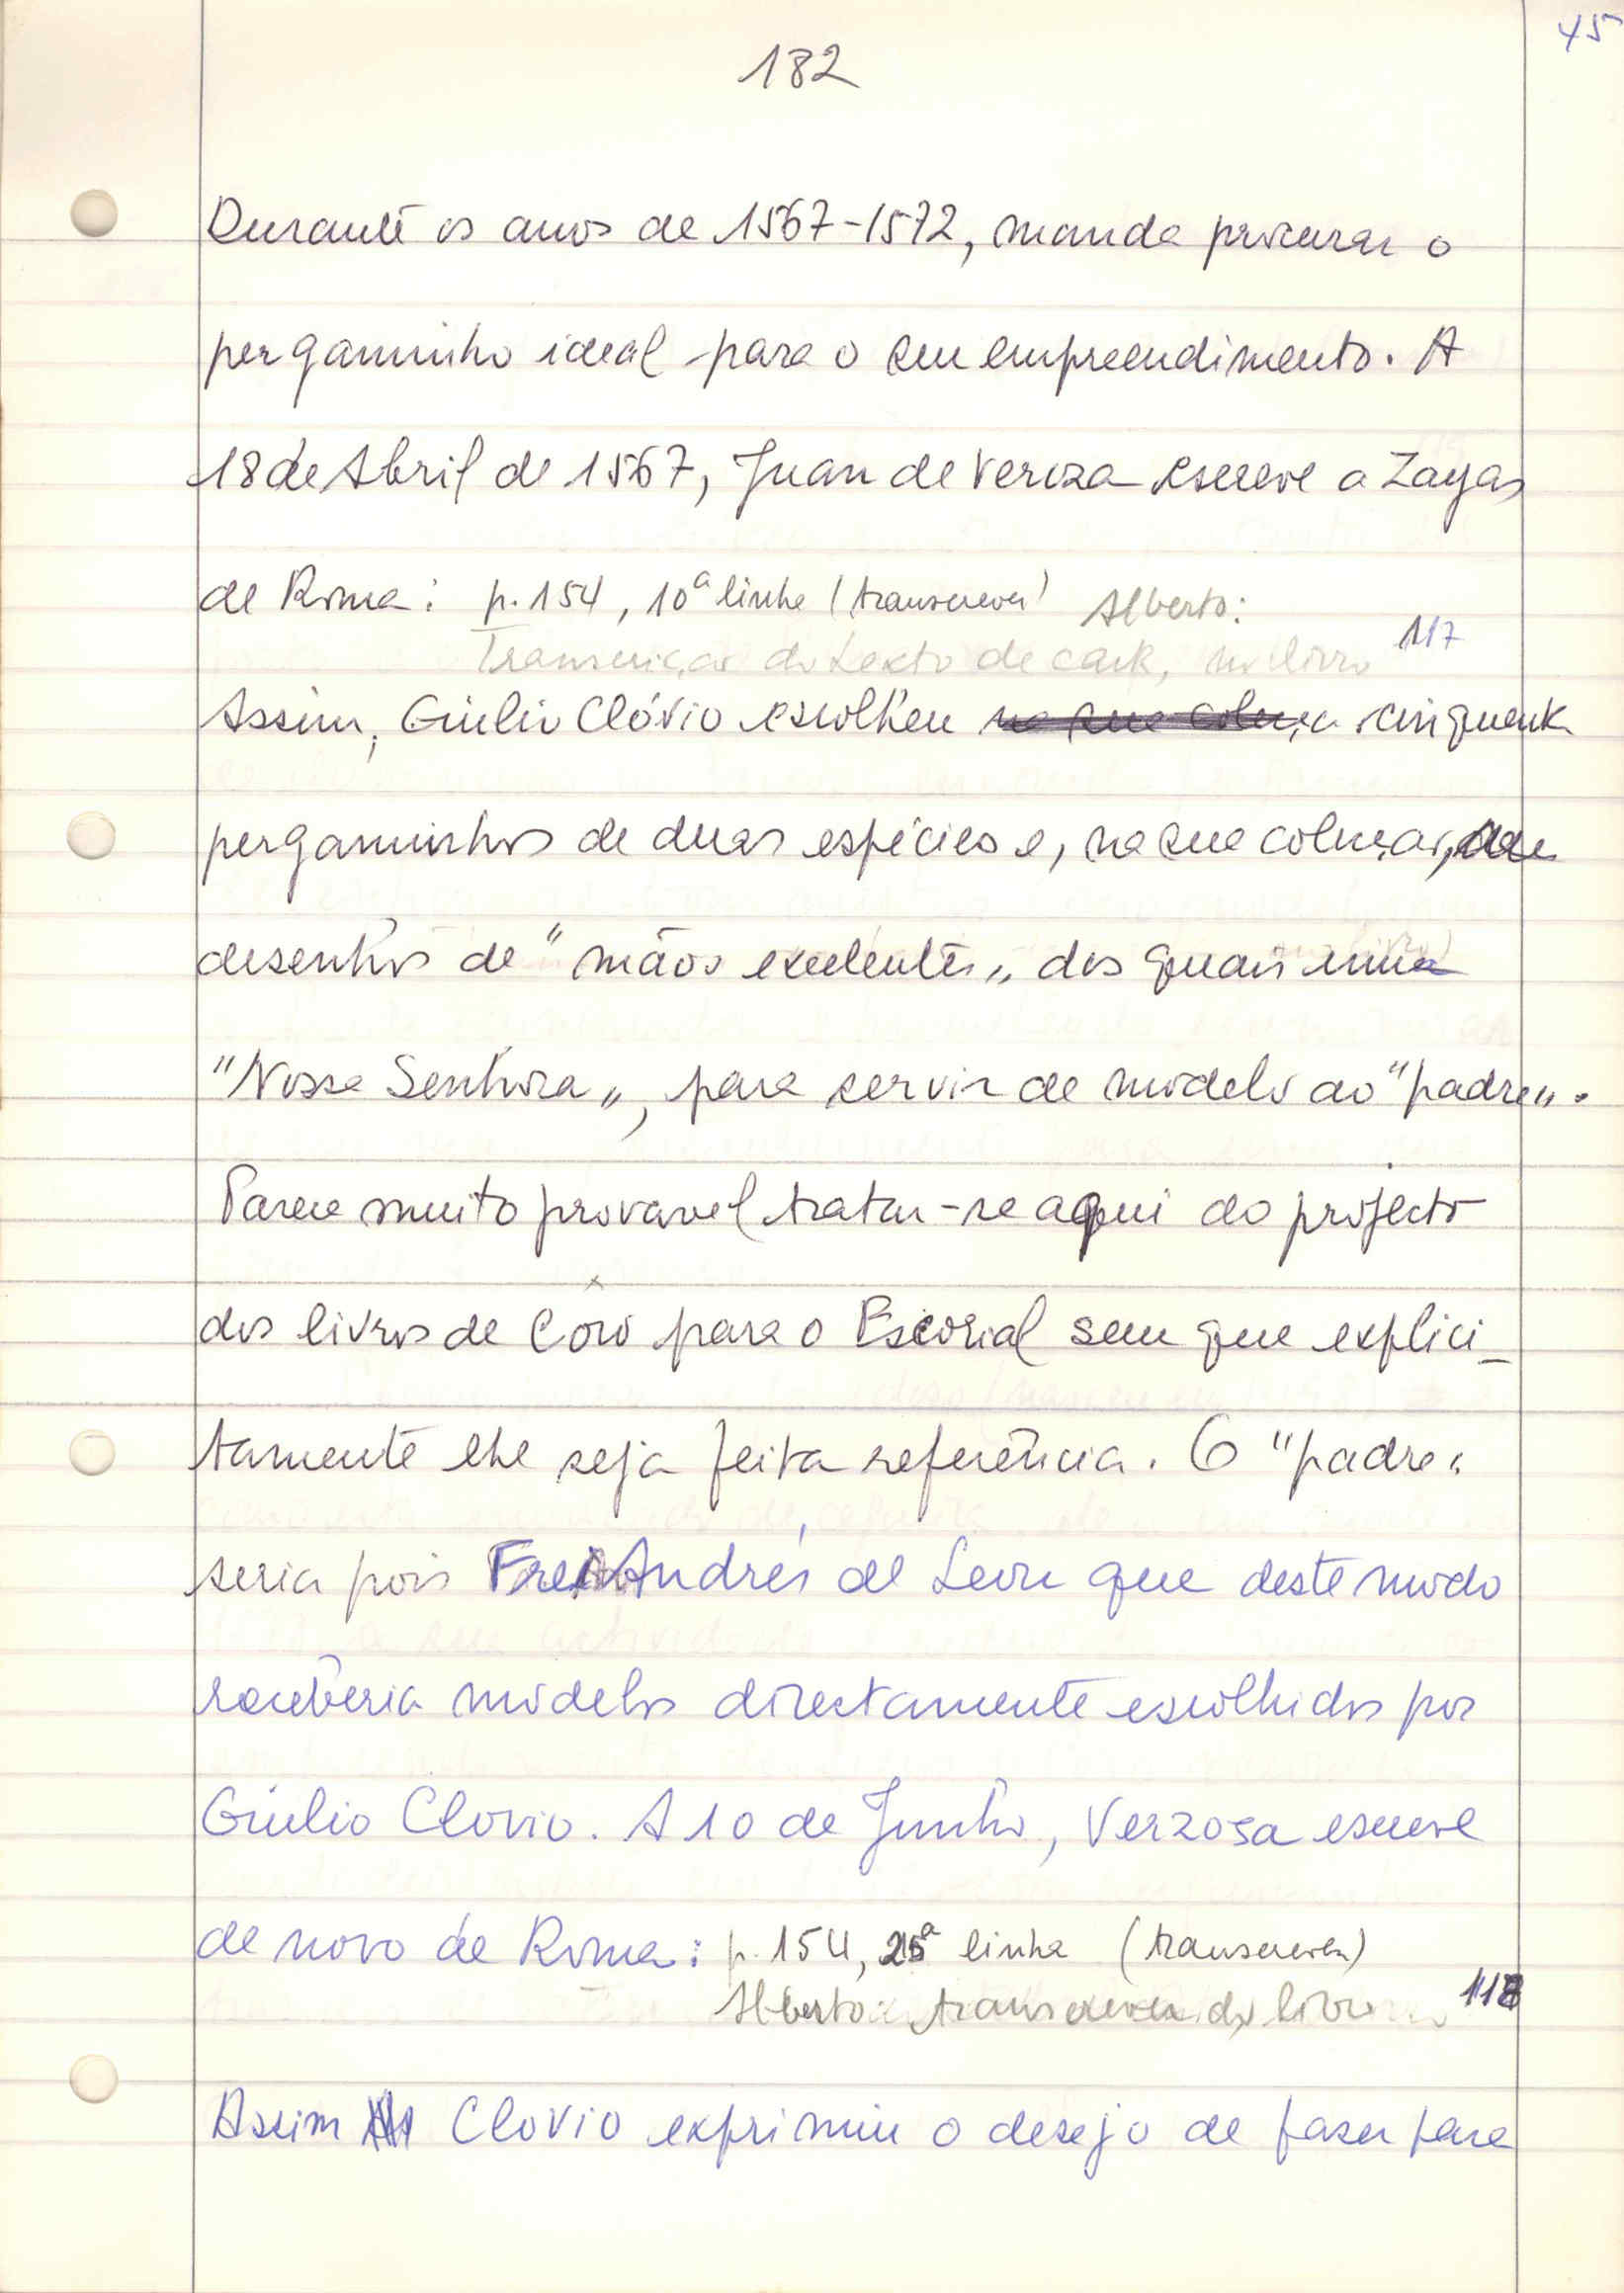 45
182
Durante os anos de 1567-1572, manda procurar o
pergaminho ideal para o seu empreendimento. A
18 de Abril de 1567, Juan de Verzoza escreve a Zayas
de Roma: p. 154, 10ª linha (transcrever) Alberto:
Transcrição do texto de carta, no livro 117
Assim, Giulio Clóvio escolheu cinquenta
pergaminhos de duas espécies e, na sua colecção,
desenhos de "mãos excelentes" dos quais uma
"Nossa Senhora", para servir de modelo ao "padre".
Parece muito provavel tratar-se aqui do projecto
dos livros de Côro para o Escorial sem que explici-
tamente lhe seja feita referência. O "padre"
seria pois Frei Andrés de Leon que deste modo
receberia modelos directamente escolhidos por
Giulio Clovio. A 10 de Junho, Verzosa escreve
de novo de Roma: p. 154, 25ª linha (transcrever)
Alberto: transcrever do livro 118
Assim Clovio exprimiu o desejo de fazer para